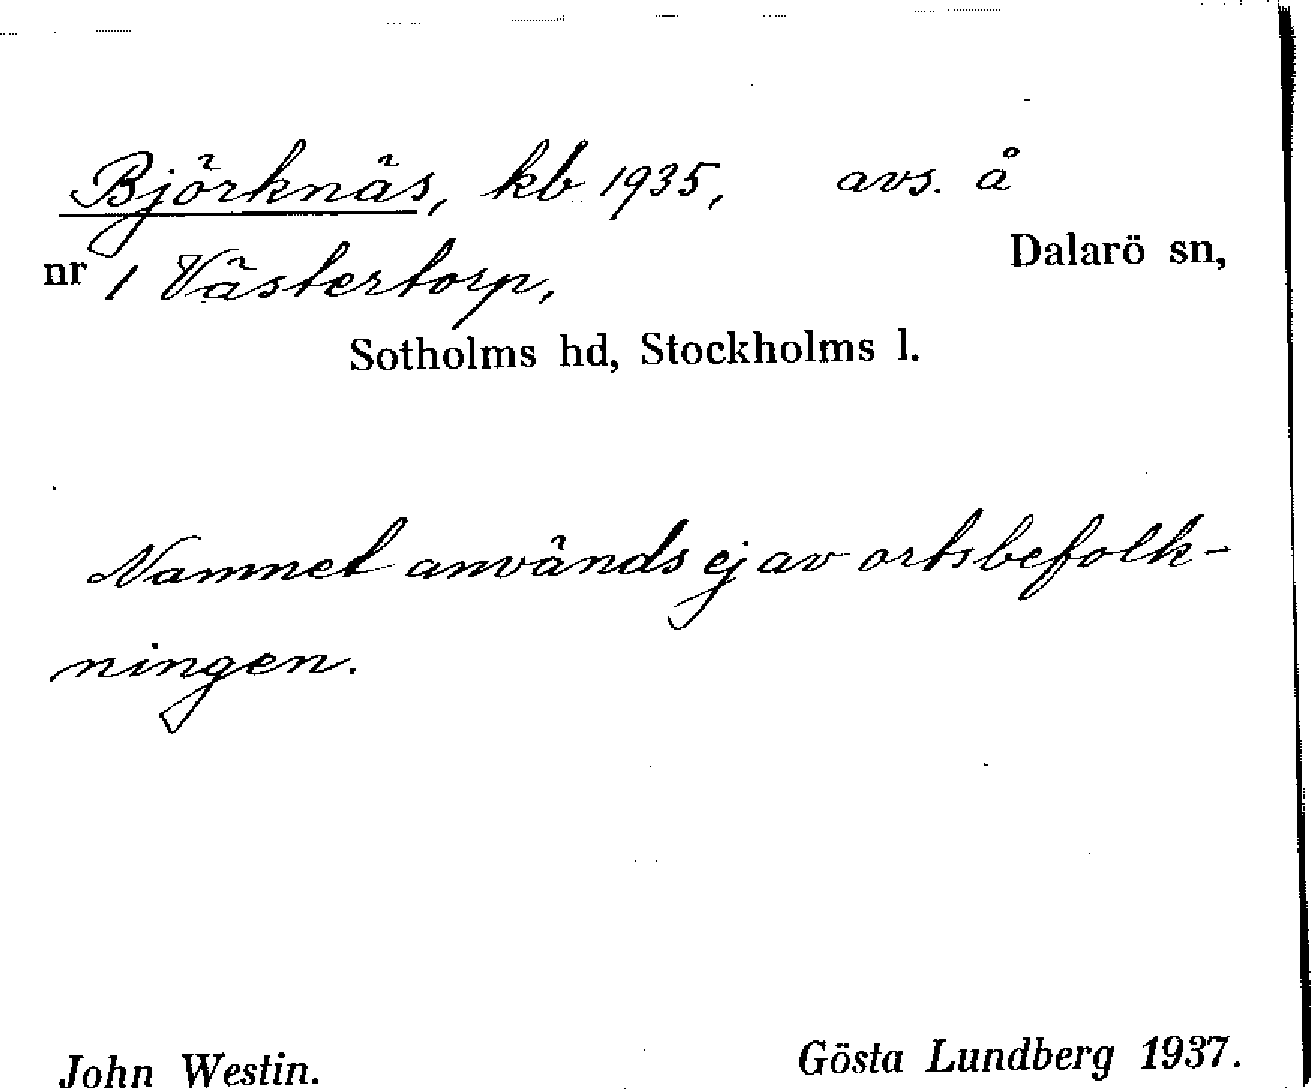 Björknäs, kb 1935, avs. å
nr 1 Västertorp, Dalarö sn,
Sotholms hd, Stockholms l.
Namnet används ej av ortsbefolk-
ningen.
John Westin. Gösta Lundberg 1937.